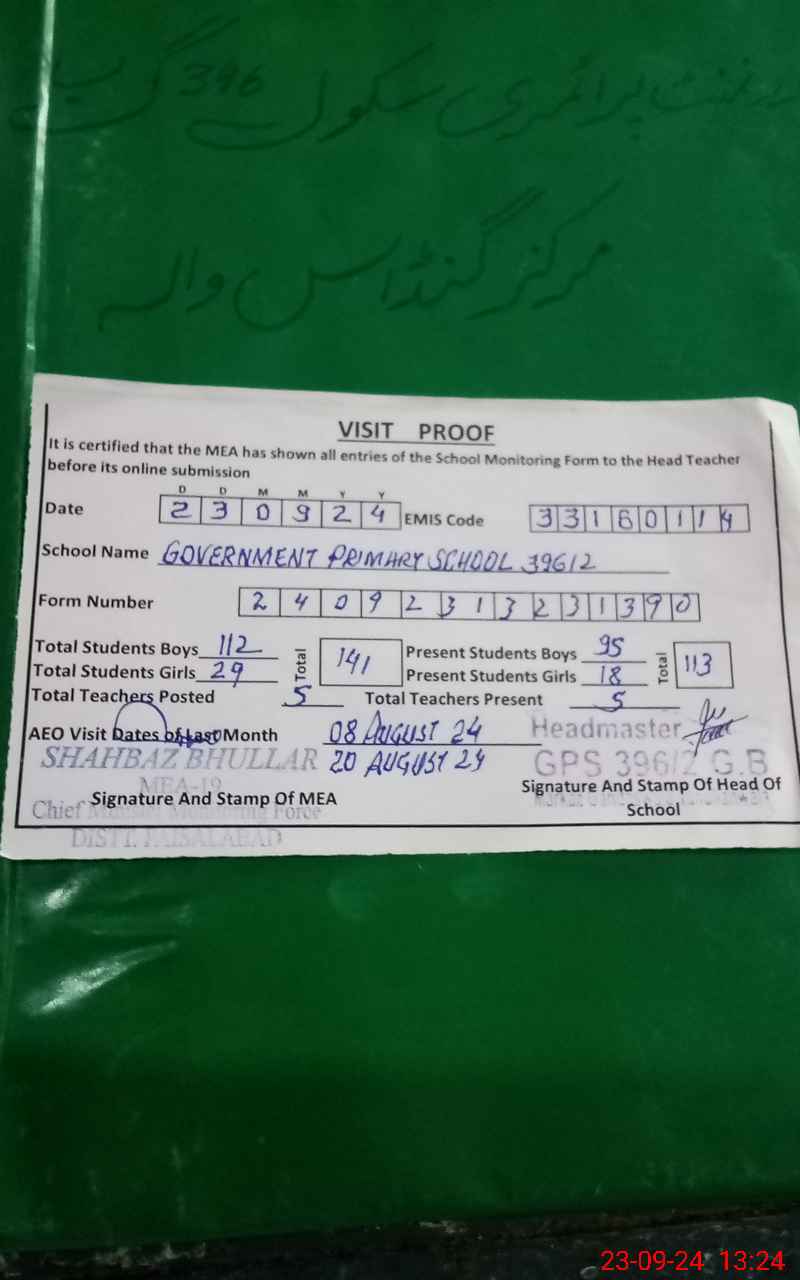 گورنمنٹ پرائمری سکول 396 گ ب
مرکز گنڈاس والہ
VISIT PROOF
It is certified that the MEA has shown all entries of the School Monitoring Form to the Head Teacher
before its online submission
D D M M Y Y
Date 2 3 0 9 2 4 EMIS Code 3 3 1 6 0 1 1 4
School Name GOVERNMENT PRIMARY SCHOOL 396/2
Form Number 2 4 0 9 2 3 1 3 2 3 1 3 9 0
Total Students Boys 112 Total 141 Present Students Boys 95 Total 113
Total Students Girls 29 Present Students Girls 18
Total Teachers Posted 5 Total Teachers Present 5
AEO Visit Dates of Last Month 08 AUGUST 24 Headmaster
SHAHBAZ BHULLAR 20 AUGUST 24 GPS 396/2 G.B
MEA-19
Signature And Stamp Of MEA Signature And Stamp Of Head Of
School
Chief Minister Monitoring Force
DISTT. FAISALABAD
23-09-24 13:24